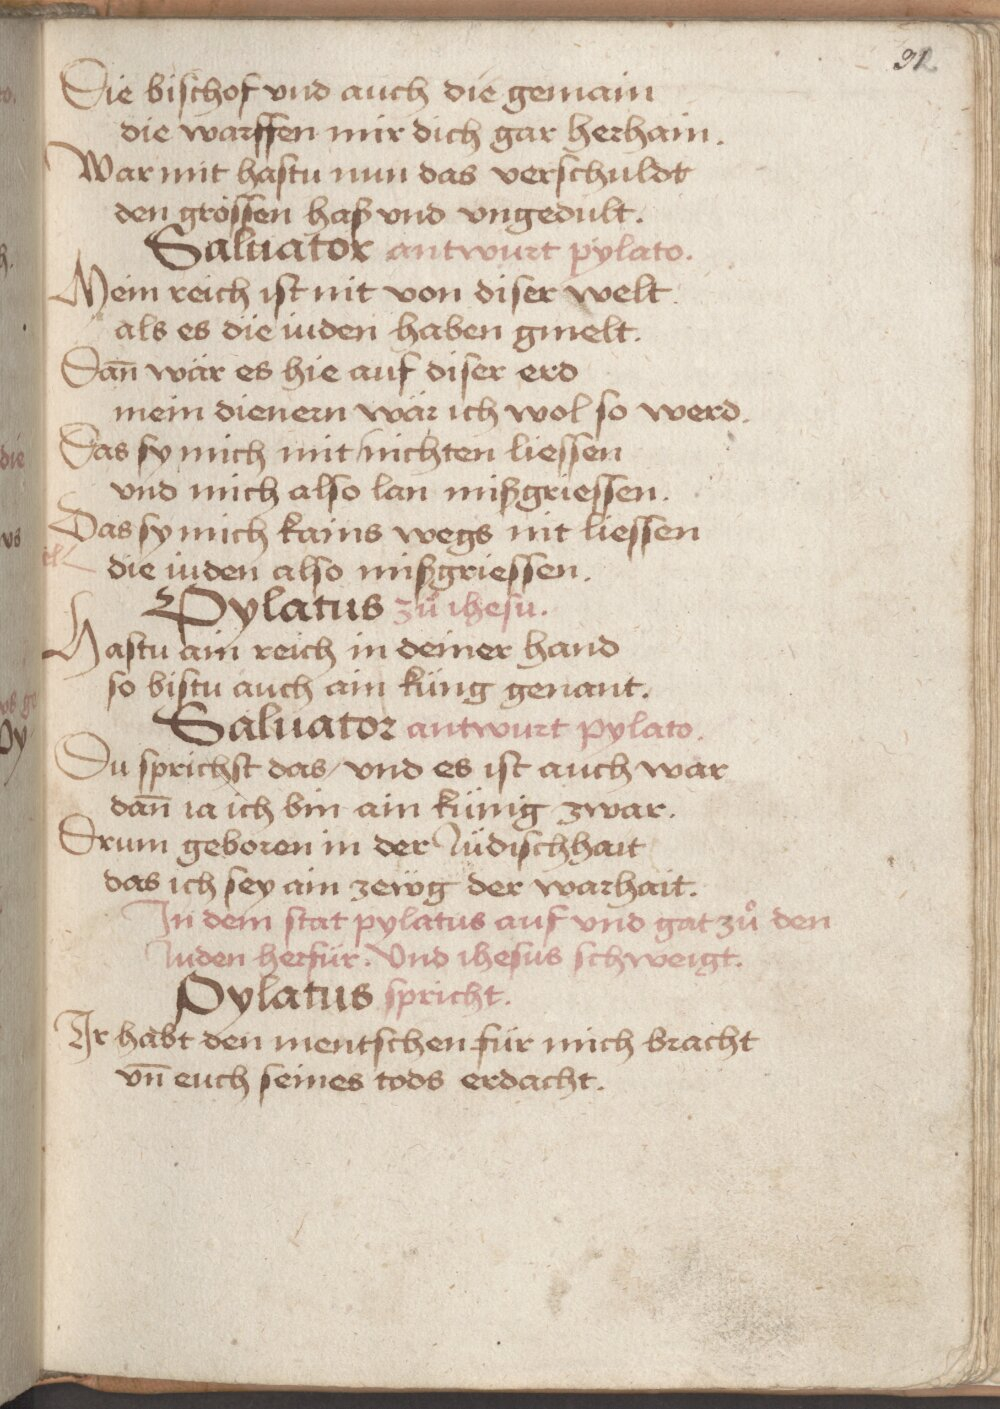 32
Die bischof vnd auch die gemain
die warffen mir dich gar herhain.
War mit hastu nun das verschuldt
den grossen haß vnd vngedult.
Saluator antwurt pylato.
Mein reich ist nit von diser welt
als es die iuden haben gmelt.
Dañ wär es hie auf diser erd
mein dienern wär ich wol so werd.
Das sy mich mit nichten liessen
vnd mich also lan mißgriessen.
Das sy mich kains wegs nit liessen
die iuden also mißgriessen.
Pylatus zů ihesu.
Hastu ain reich in deiner hand
so bistu auch ain küng genant.
Saluator antwurt pylato.
Du sprichst das/ vnd es ist auch war
dañ ia ich bin ain künig zwar.
Drum geboren in der Jüdischhait
das ich sey ain zewg der warhait.
In dem stat pylatus auf vnd gat zů den
Juden herfür. Vnd ihesus schweigt.
Pylatus spricht.
Ir habt den mentschen für mich bracht
vn̄ euch seines tods erdacht.